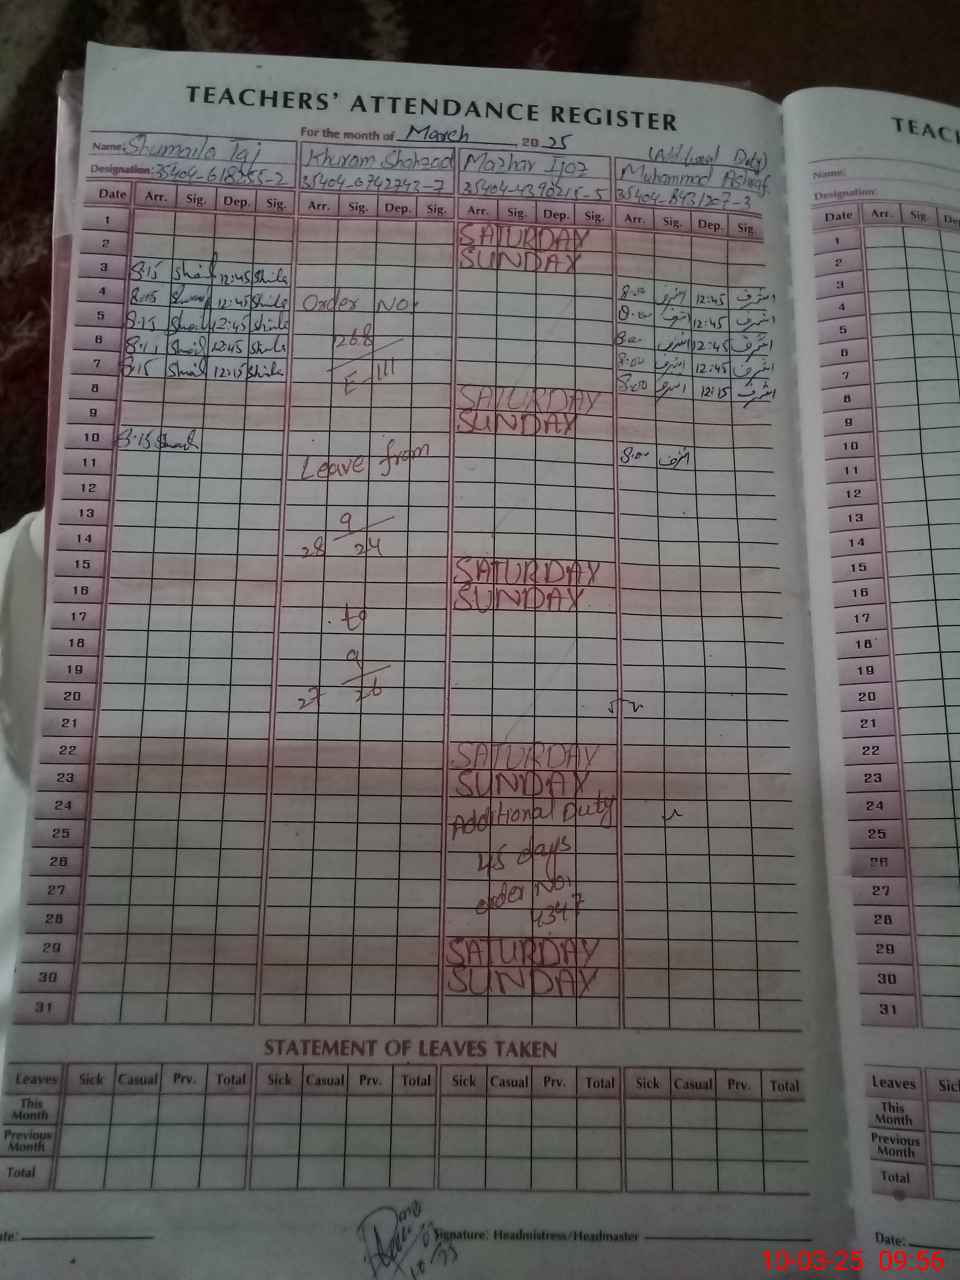 TEACHERS' ATTENDANCE REGISTER
For the month of March 2025
Name: Shumaila Taj Khuram Shahzad Mazhar Ijaz (Additional Duty) Muhammad Ashraf
Designation: 35404-6742742-7 35404-4390215-5 35404-8431207-3
Date Arr. Sig. Dep. Sig. Arr. Sig. Dep. Sig. Arr. Sig. Dep. Sig. Arr. Sig. Dep. Sig.
1 SATURDAY
2 SUNDAY
3 8:15 12:45 8:00 اشرف 12:45 اشرف
4 8:15 12:45 Order No. 8:00 اشرف 12:45 اشرف
5 8:15 12:45 8:00 اشرف 12:45 اشرف
6 12:45 268 8:00 اشرف 12:45 اشرف
7 8:15 12:15 E-III 8:00 اشرف 12:15 اشرف
8 SATURDAY
9 SUNDAY
10 8:15 8:00 اشرف
11 Leave from
12
13 9
14 28 24
15 SATURDAY
16 SUNDAY
17 to
18
19 9
20 27 26
21
22 SATURDAY
23 SUNDAY
24 Additional Duty
25
26 45 days
27 order No.
28 4347
29 SATURDAY
30 SUNDAY
31
STATEMENT OF LEAVES TAKEN
Leaves Sick Casual Prv. Total Sick Casual Prv. Total Sick Casual Prv. Total Sick Casual Prv. Total
This Month
Previous Month
Total
Signature: Headmistress/Headmaster
TEACH
Name:
Designation:
Date Arr. Sig.
1
2
3
4
5
6
7
8
9
10
11
12
13
14
15
16
17
18
19
20
21
22
23
24
25
26
27
28
29
30
31
Leaves
This Month
Previous Month
Total
Date:
10-03-25 09:56